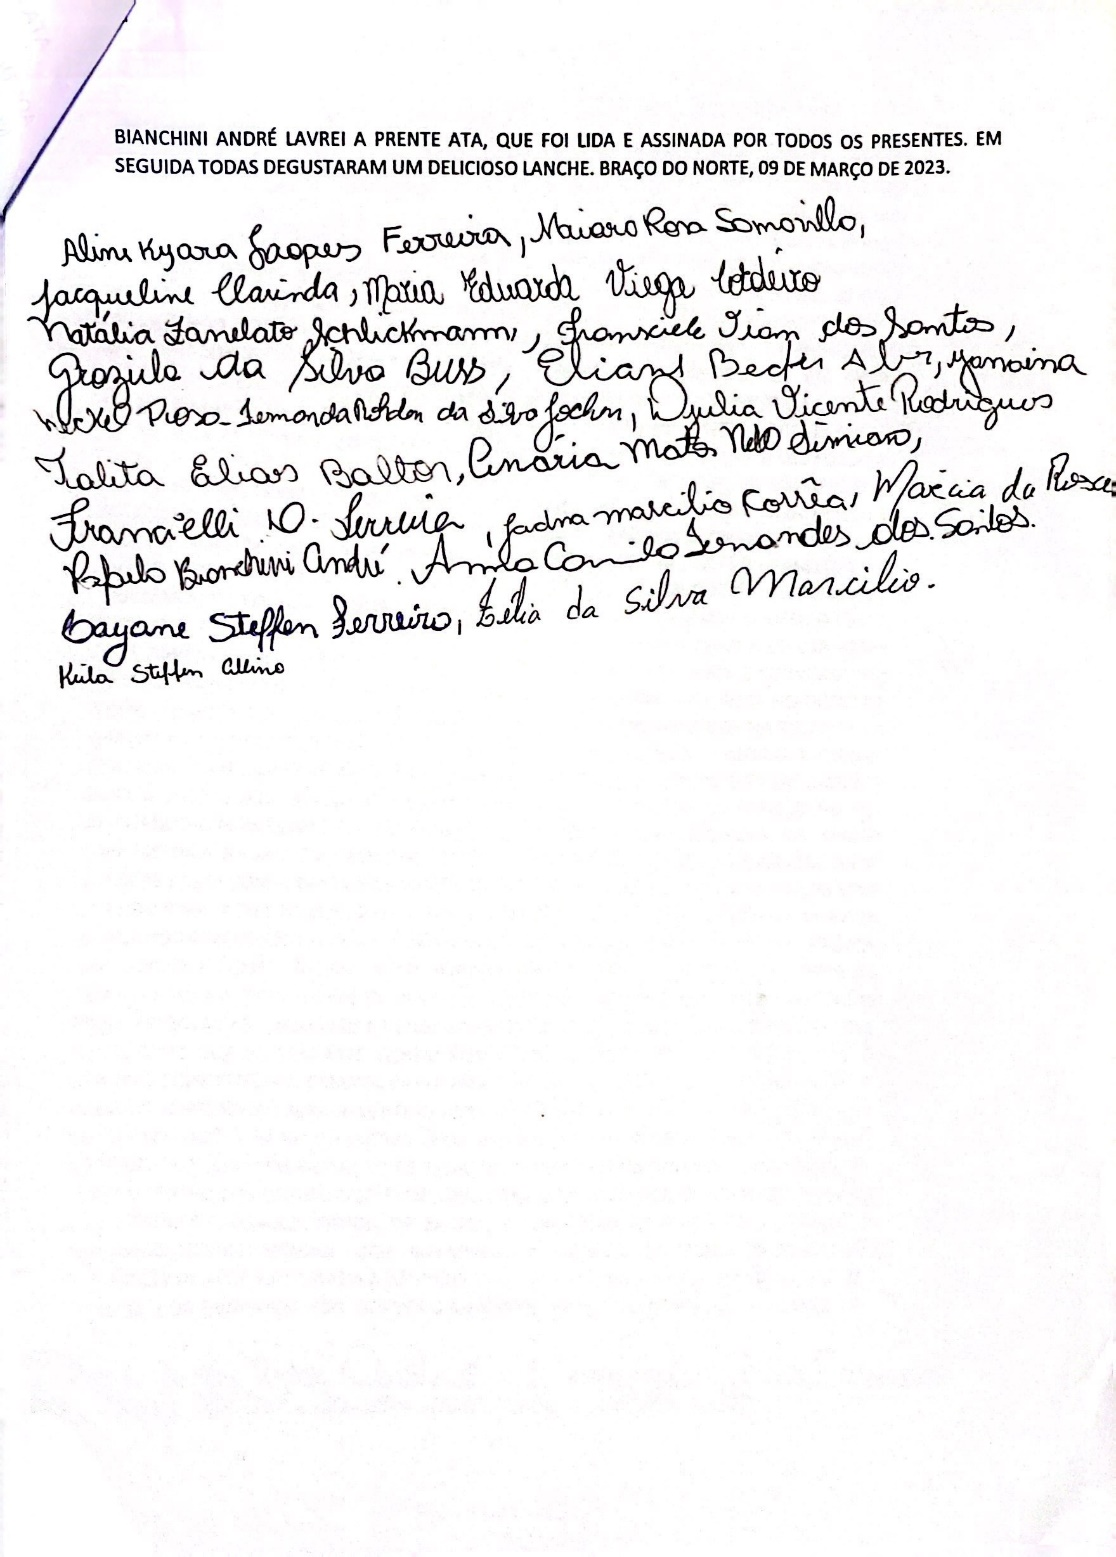 BIANCHINI ANDRÉ LAVREI A PRENTE ATA, QUE FOI LIDA E ASSINADA POR TODOS OS PRESENTES. EM
SEGUIDA TODAS DEGUSTARAM UM DELICIOSO LANCHE. BRAÇO DO NORTE, 09 DE MARÇO DE 2023.
Aline Kyara Jaques Ferreira, Maiara Rosa
Jacqueline Clarinda, Maria Eduarda Viega Cordeiro
Natália Zanelato Schlickmann, Franciele dos Santos,
Graziela da Silva Buss, Eliane Becker Janaina
da Silva Jochem, Djulia Vicente Rodrigues
Talita Elias
Francielli D. Ferreira, Jadna Marcilio Corrêa, Márcia da Rosa
Rafaela Bianchini André. Camila Fernandes dos Santos.
Dayane Steffen Ferreira, Zélia da Silva Marcilio.
Keila Steffen